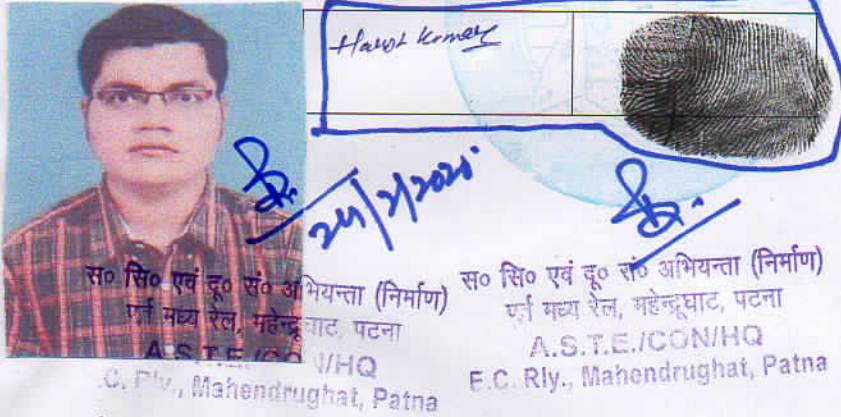 Harsh Kumar
24/2/2020
स० सि० एवं दू० सं० अभियन्ता (निर्माण)
पूर्व मध्य रेल, महेन्द्रूघाट, पटना
A.S.T.E./CON/HQ
E.C. Rly., Mahendrughat, Patna
स० सि० एवं दू० सं० अभियन्ता (निर्माण)
पूर्व मध्य रेल, महेन्द्रूघाट, पटना
A.S.T.E./CON/HQ
E.C. Rly., Mahendrughat, Patna